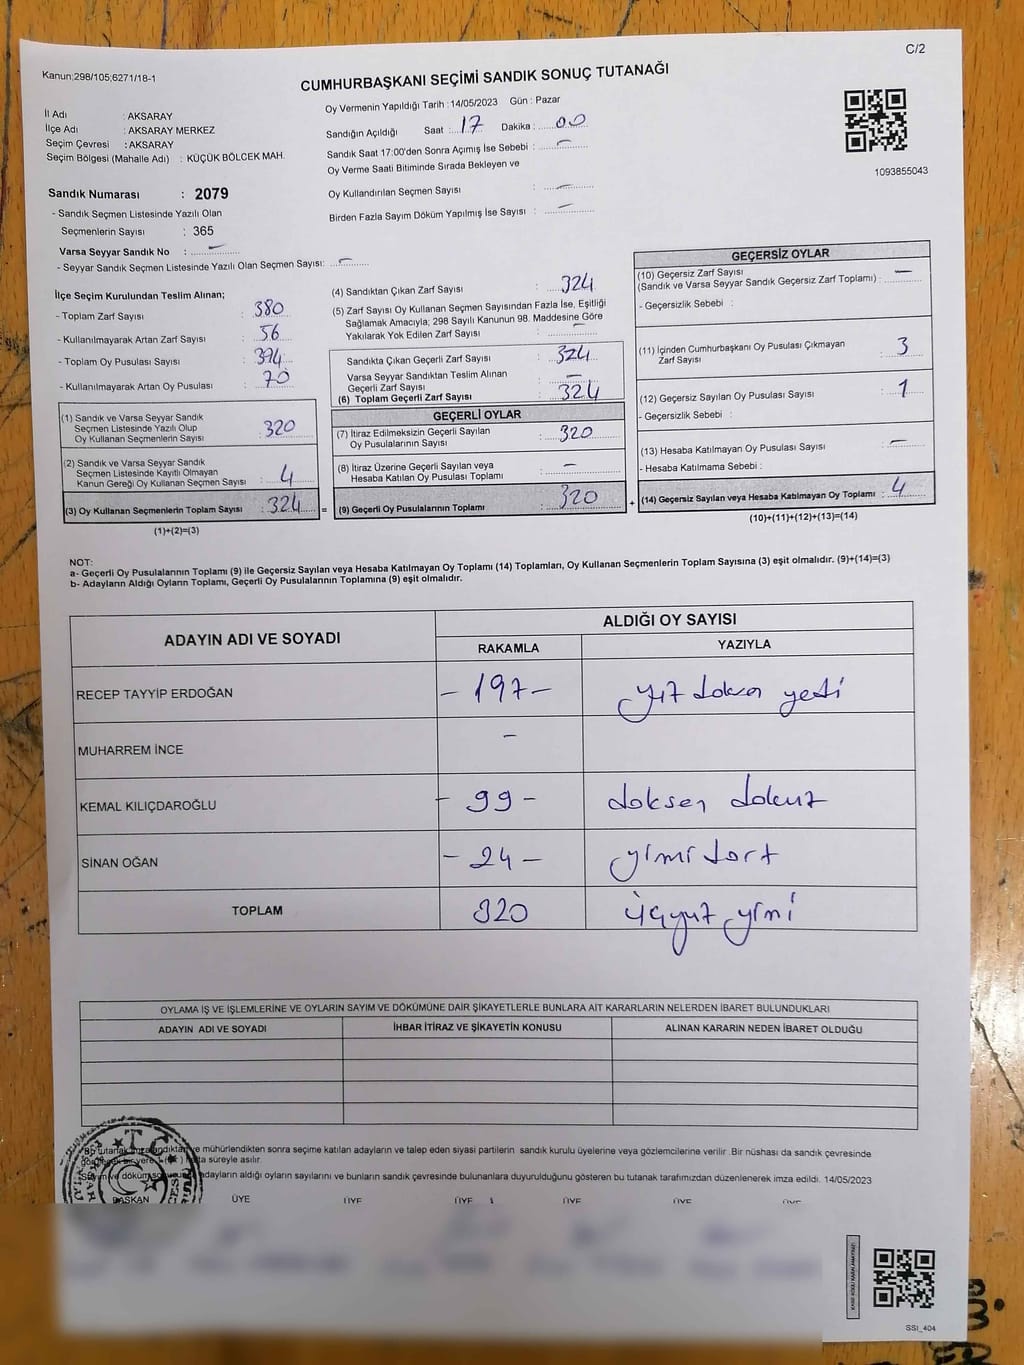 C/2
Kanun;298/105;6271/18-1
CUMHURBAŞKANI SEÇİMİ SANDIK SONUÇ TUTANAĞI
İl Adı : AKSARAY
İlçe Adı : AKSARAY MERKEZ
Seçim Çevresi : AKSARAY
Seçim Bölgesi (Mahalle Adı) : KÜÇÜK BÖLCEK MAH.
Oy Vermenin Yapıldığı Tarih : 14/05/2023 Gün : Pazar
Sandığın Açıldığı Saat : 17 Dakika : 00
Sandık Saat 17:00'den Sonra Açımış İse Sebebi : —
Oy Verme Saati Bitiminde Sırada Bekleyen ve
Oy Kullandırılan Seçmen Sayısı : —
Birden Fazla Sayım Döküm Yapılmış İse Sayısı : —
1093855043
Sandık Numarası : 2079
- Sandık Seçmen Listesinde Yazılı Olan
Seçmenlerin Sayısı : 365
Varsa Seyyar Sandık No : —
- Seyyar Sandık Seçmen Listesinde Yazılı Olan Seçmen Sayısı: —
İlçe Seçim Kurulundan Teslim Alınan;
- Toplam Zarf Sayısı : 380
- Kullanılmayarak Artan Zarf Sayısı : 56
- Toplam Oy Pusulası Sayısı : 394
- Kullanılmayarak Artan Oy Pusulası : 70
(1) Sandık ve Varsa Seyyar Sandık
Seçmen Listesinde Yazılı Olup
Oy Kullanan Seçmenlerin Sayısı : 320
(2) Sandık ve Varsa Seyyar Sandık
Seçmen Listesinde Kayıtlı Olmayan
Kanun Gereği Oy Kullanan Seçmen Sayısı : 4
(3) Oy Kullanan Seçmenlerin Toplam Sayısı : 324 =
(1)+(2)=(3)
(4) Sandıktan Çıkan Zarf Sayısı : 324
(5) Zarf Sayısı Oy Kullanan Seçmen Sayısından Fazla İse, Eşitliği
Sağlamak Amacıyla; 298 Sayılı Kanunun 98. Maddesine Göre
Yakılarak Yok Edilen Zarf Sayısı : —
Sandıkta Çıkan Geçerli Zarf Sayısı : 324
Varsa Seyyar Sandıktan Teslim Alınan
Geçerli Zarf Sayısı : —
(6) Toplam Geçerli Zarf Sayısı : 324
GEÇERLİ OYLAR
(7) İtiraz Edilmeksizin Geçerli Sayılan
Oy Pusulalarının Sayısı : 320
(8) İtiraz Üzerine Geçerli Sayılan veya
Hesaba Katılan Oy Pusulası Toplamı : —
(9) Geçerli Oy Pusulalarının Toplamı : 320 +
GEÇERSİZ OYLAR
(10) Geçersiz Zarf Sayısı
(Sandık ve Varsa Seyyar Sandık Geçersiz Zarf Toplamı) : —
- Geçersizlik Sebebi :
(11) İçinden Cumhurbaşkanı Oy Pusulası Çıkmayan
Zarf Sayısı : 3
(12) Geçersiz Sayılan Oy Pusulası Sayısı : 1
- Geçersizlik Sebebi :
(13) Hesaba Katılmayan Oy Pusulası Sayısı : —
- Hesaba Katılmama Sebebi :
(14) Geçersiz Sayılan veya Hesaba Katılmayan Oy Toplamı : 4
(10)+(11)+(12)+(13)=(14)
NOT:
a- Geçerli Oy Pusulalarının Toplamı (9) ile Geçersiz Sayılan veya Hesaba Katılmayan Oy Toplamı (14) Toplamları, Oy Kullanan Seçmenlerin Toplam Sayısına (3) eşit olmalıdır. (9)+(14)=(3)
b- Adayların Aldığı Oyların Toplamı, Geçerli Oy Pusulalarının Toplamına (9) eşit olmalıdır.
ADAYIN ADI VE SOYADI
ALDIĞI OY SAYISI
RAKAMLA YAZIYLA
RECEP TAYYİP ERDOĞAN - 197 - yüz doksan yedi
MUHARREM İNCE -
KEMAL KILIÇDAROĞLU - 99 - doksan dokuz
SİNAN OĞAN - 24 - yirmi dört
TOPLAM 320 üçyüz yirmi
OYLAMA İŞ VE İŞLEMLERİNE VE OYLARIN SAYIM VE DÖKÜMÜNE DAİR ŞİKAYETLERLE BUNLARA AİT KARARLARIN NELERDEN İBARET BULUNDUKLARI
ADAYIN ADI VE SOYADI İHBAR İTİRAZ VE ŞİKAYETİN KONUSU ALINAN KARARIN NEDEN İBARET OLDUĞU
Bu tutanak ve mühürlendikten sonra seçime katılan adayların ve talep eden siyasi partilerin sandık kurulu üyelerine veya gözlemcilerine verilir. Bir nüshası da sandık çevresinde
süreyle asılır.
Sayım ve döküm adayların aldığı oyların sayılarını ve bunların sandık çevresinde bulunanlara duyurulduğunu gösteren bu tutanak tarafımızdan düzenlenerek imza edildi. 14/05/2023
T.C.
BAŞKAN ÜYE ÜYE ÜYE ÜYE ÜYE ÜYE
SSI_404